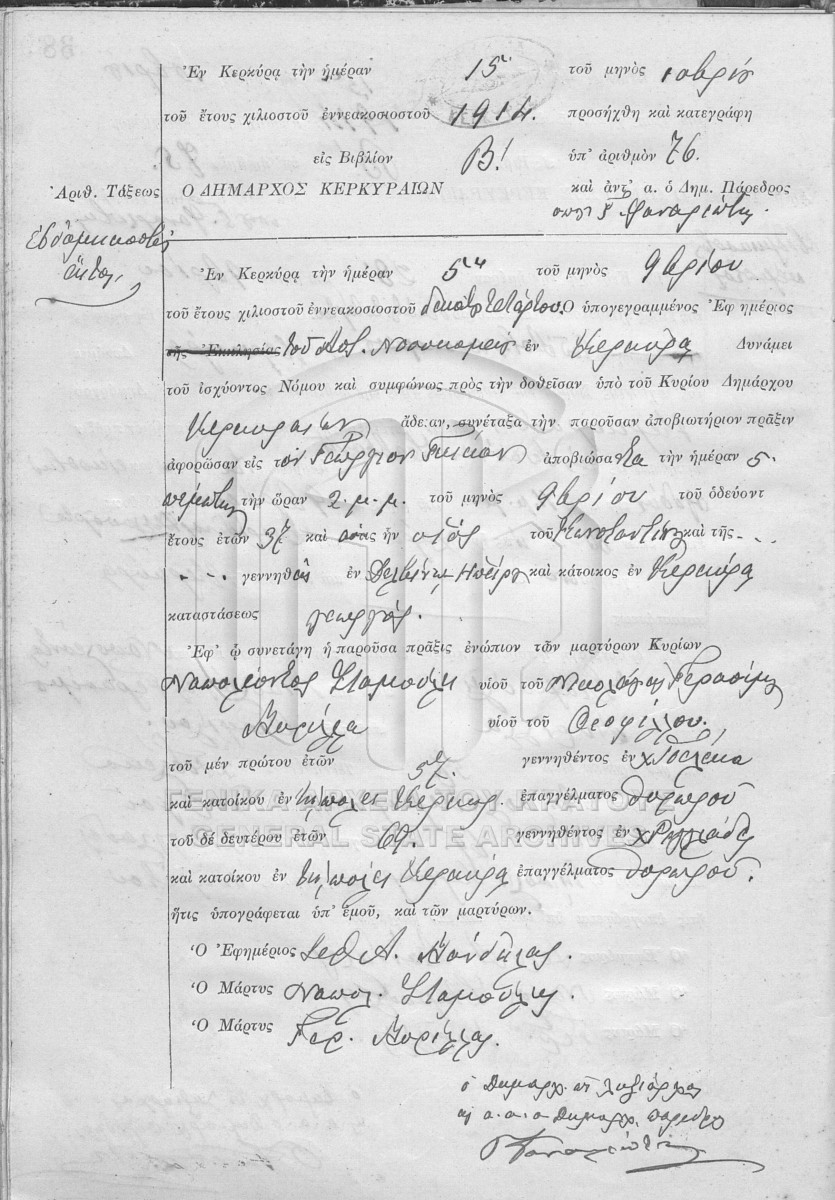 Ἐν Κερκύρᾳ τὴν ἡμέραν 15ην τοῦ μηνὸς 9βρίου
τοῦ ἔτους χιλιοστοῦ ἐννεακοσιοστοῦ 1914. προσήχθη καὶ κατεγράφη
εἰς Βιβλίον Β! ὑπ' ἀριθμὸν 76.
Ἀριθ. Τάξεως Ο ΔΗΜΑΡΧΟΣ ΚΕΡΚΥΡΑΙΩΝ καὶ ἀντ' α. ὁ Δημ. Πάρεδρος
Φαναριώτης
Ἑβδομηκοστὴ
ἕκτη
Ἐν Κερκύρᾳ τὴν ἡμέραν 5ην τοῦ μηνὸς 9βρίου
τοῦ ἔτους χιλιοστοῦ ἐννεακοσιοστοῦ δεκάτου τετάρτου. Ο ὑπογεγραμμένος Ἐφημέριος
τῆς Ἐκκλησίας τοῦ Νοσοκομείου ἐν Κερκύρᾳ Δυνάμει
τοῦ ἰσχύοντος Νόμου καὶ συμφώνως πρὸς τὴν δοθεῖσαν ὑπὸ τοῦ Κυρίου Δημάρχου
Κερκυραίων ἄδειαν, συνέταξα τὴν παροῦσαν ἀποβιωτήριον πρᾶξιν
ἀφορῶσαν εἰς τὸν Γεώργιον Γκίκαν ἀποβιώσαντα τὴν ἡμέραν 5
πέμπτην τὴν ὥραν 2 μ.μ. τοῦ μηνὸς 9βρίου τοῦ ὁδεύοντ
ἔτους ἐτῶν 37 καὶ ὅστις ἦν υἱὸς τοῦ Κωνσταντίνου καὶ τῆς - -
- - γεννηθεὶς ἐν Δελβίνῳ Ἠπείρου καὶ κάτοικος ἐν Κερκύρᾳ
καταστάσεως γεωργός.
Ἐφ' ᾧ συνετάγη ἡ παροῦσα πρᾶξις ἐνώπιον τῶν μαρτύρων Κυρίων
Ναπολέοντος Σταμούλη υἱοῦ τοῦ Νικολάου Γερασίμου
Κυρίλλα υἱοῦ τοῦ Θεοφίλου.
τοῦ μὲν πρώτου ἐτῶν 57. γεννηθέντος ἐν
καὶ κατοίκου ἐν τῇ πόλει Κερκύρας ἐπαγγέλματος θυρωροῦ
τοῦ δὲ δευτέρου ἐτῶν 69. γεννηθέντος ἐν
καὶ κατοίκου ἐν τῇ πόλει Κερκύρᾳ ἐπαγγέλματος θυρωροῦ.
ἥτις ὑπογράφεται ὑπ' ἐμοῦ, καὶ τῶν μαρτύρων.
Ὁ Ἐφημέριος
Ὁ Μάρτυς Ναπολ. Σταμούλης.
Ὁ Μάρτυς Γερ. Κυρίλλας.
ὁ Δήμαρχ.
α.α. ὁ Δημαρχ. πάρεδρος
Φαναριώτης
ΓΕΝΙΚΑ ΑΡΧΕΙΑ ΤΟΥ ΚΡΑΤΟΥΣ
GENERAL STATE ARCHIVES